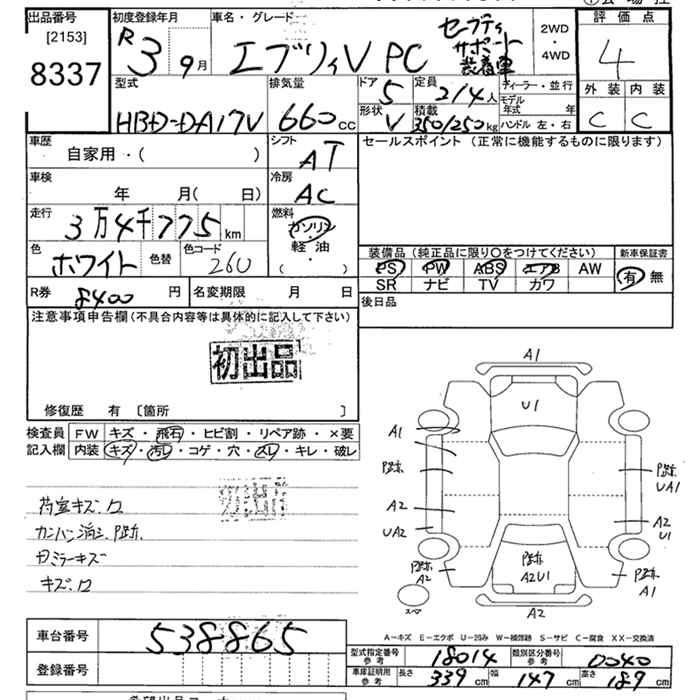 出品番号
[2153]
8337
初度登録年月
R 3 9月
車名・グレード
エブリィV PC
セーフティ
サポート
装着車
2WD
・
4WD
評価点
4
外装 内装
C C
型式
HBD-DA17V
排気量
660cc
ドア 5
形状 V
定員 2/4人
積載 350/250kg
ディーラー・並行
モデル年式 年
ハンドル 左・右
車歴
自家用・( )
シフト
AT
セールスポイント(正常に機能するものに限ります)
車検
年 月( 日)
冷房
AC
走行
3万4千775km
燃料
ガソリン
軽油
( ・ )
色
ホワイト
色替
色コード
26U
装備品(純正品に限り〇をつけてください)
PS PW ABS エアB AW
SR ナビ TV カワ
新車保証書
有 無
R券 8400円
名変期限 月 日
後日品
注意事項申告欄(不具合内容等は具体的に記入して下さい)
初出品
修復歴 有 〔箇所 〕
検査員
記入欄
FW キズ・飛石・ヒビ割・リペア跡・×要
内装 キズ・汚レ・コゲ・穴・スレ・キレ・破レ
初出品
荷室キズ
カンバン消シP跡
Mミラーキズ
キズ
A1
U1
A1
P跡
A2
UA2
P跡
A2
P跡
UA1
A2
U1
P跡
A1
P跡
A2U1
スペア
A2
A-キズ E-エクボ U-凹み W-補修跡 S-サビ C-腐食 XX-交換済
車台番号
538865
登録番号
型式指定番号
参考
18014
類別区分番号
参考
0040
車庫証明用
参考
長さ 339cm 幅 147cm 高さ 189cm